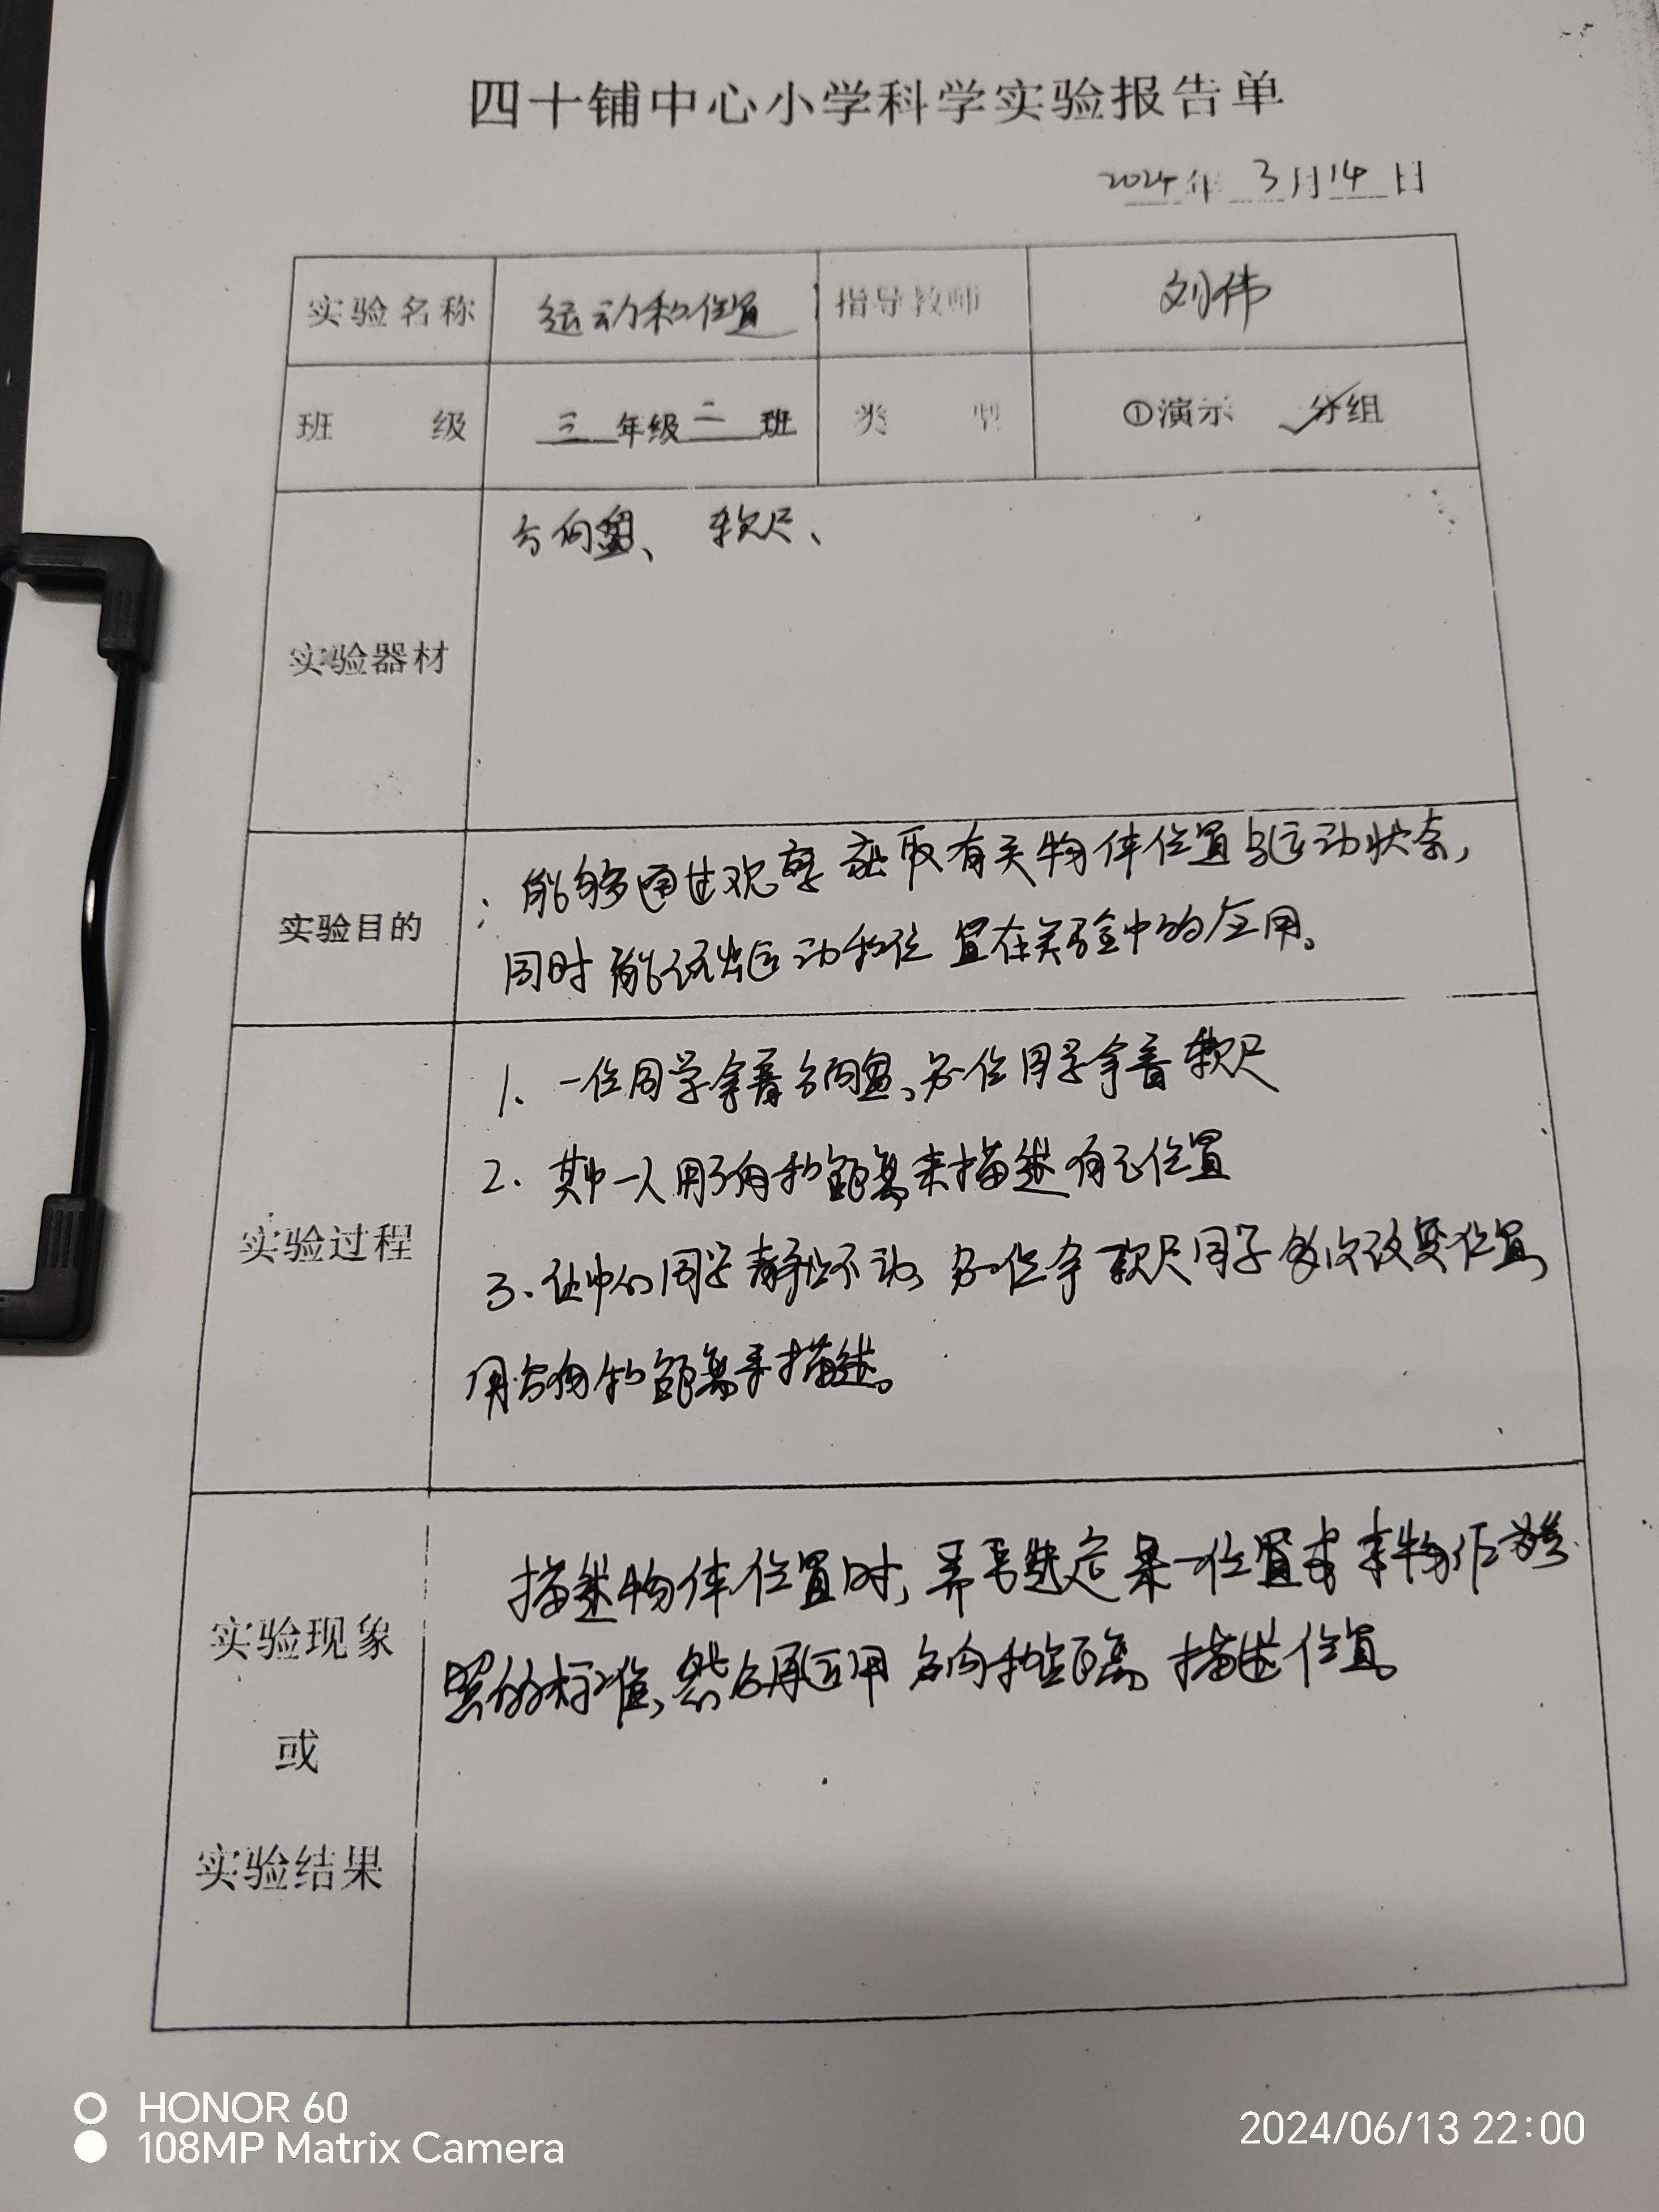 四十铺中心小学科学实验报告单
2024年 3月14日
实验名称 运动和位置 指导教师 刘伟
班 级 三年级二班 类 型 ①演示 分组
实验器材 方向盘、软尺、
实验目的
能够通过观察获取有关物体位置与运动状态，
同时能说出运动和位置在实验中的应用。
实验过程
1、一位同学拿着方向盘，另一位同学拿着软尺
2. 其中一人用方向和距离来描述自己位置
3. 让中心同学静止不动，另一位拿软尺同学多次改变位置，
用方向和距离来描述。
实验现象
或
实验结果
描述物体位置时，需要选定某一位置或事物作为参
照的标准，然后再运用方向和距离描述位置。
HONOR 60
108MP Matrix Camera
2024/06/13 22:00